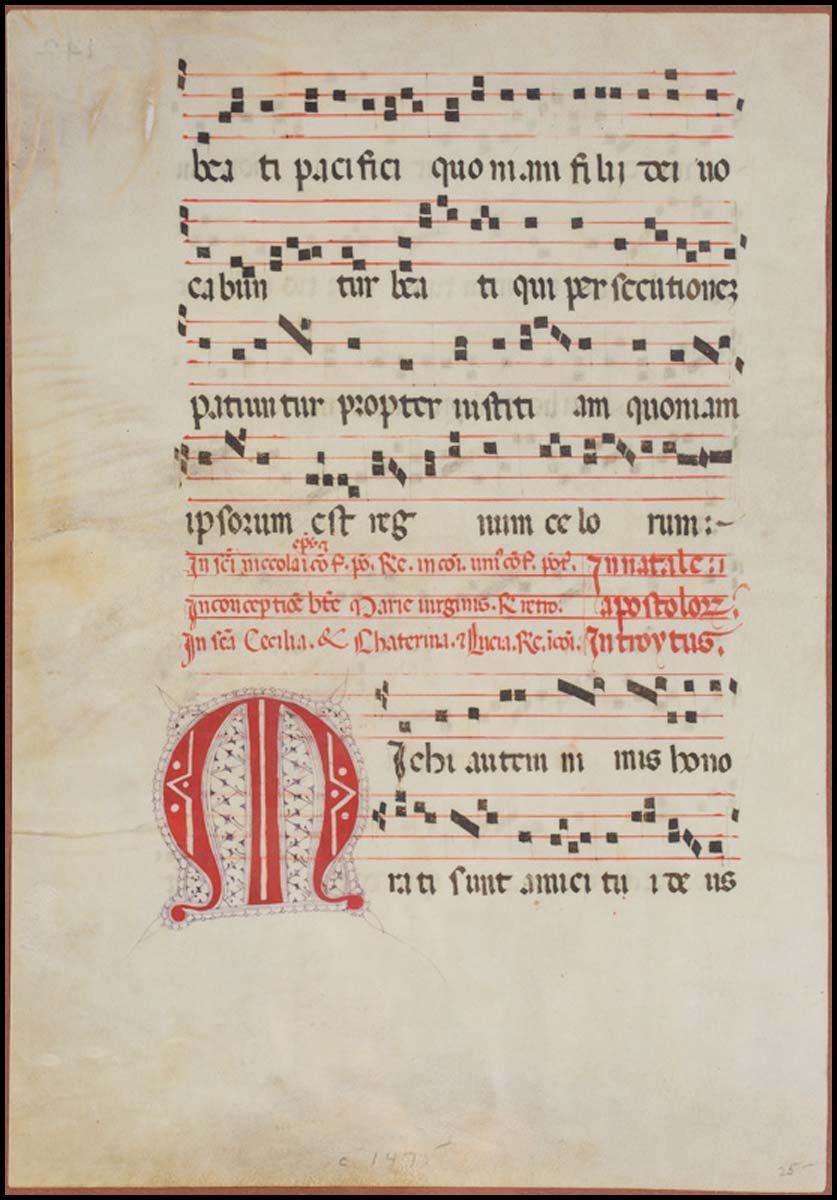 bea ti pacifici quoniam filii dei uo
cabun tur bea ti qui persecutionez
patiuntur propter iustiti am quoniam
ipsorum est reg num celo rum:~
epi.
In sci niccolai cof. po. Re. in coi. uni cof. pot. In natale:
In conceptioe bte Marie uirginis. R ietro. apostoloz.
In sca Cecilia. & Chaterina. 7 Lucia. Re. icoi. Introytus.
MIchi autem ni mis hono
rati sunt amici tu i deus
c 147
25